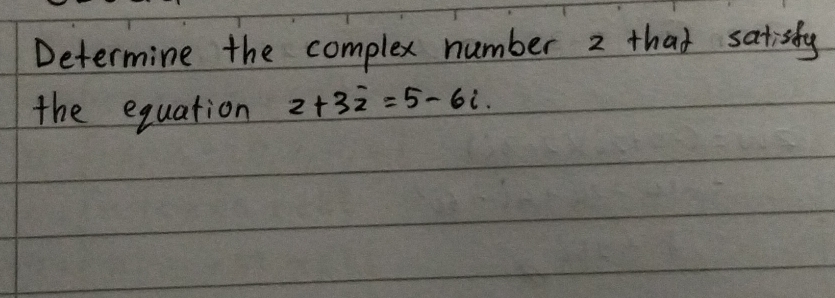 Determine the complex number z that satisfy
the equation z+3z̄ =5-6i.